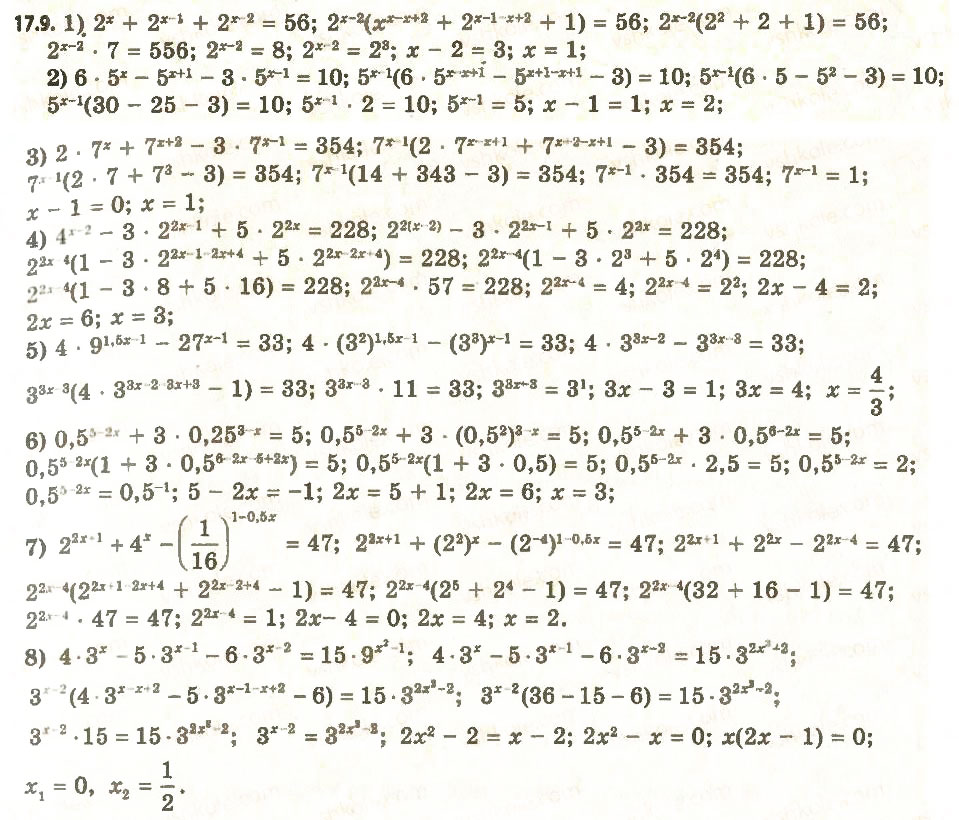 17.9. 1) 2ˣ + 2ˣ⁻¹ + 2ˣ⁻² = 56; 2ˣ⁻²(xˣ⁻ˣ⁺² + 2ˣ⁻¹⁻ˣ⁺² + 1) = 56; 2ˣ⁻²(2² + 2 + 1) = 56;
2ˣ⁻² · 7 = 556; 2ˣ⁻² = 8; 2ˣ⁻² = 2³; x − 2 = 3; x = 1;
2) 6 · 5ˣ − 5ˣ⁺¹ − 3 · 5ˣ⁻¹ = 10; 5ˣ⁻¹(6 · 5ˣ⁻ˣ⁺¹ − 5ˣ⁺¹⁻ˣ⁺¹ − 3) = 10; 5ˣ⁻¹(6 · 5 − 5² − 3) = 10;
5ˣ⁻¹(30 − 25 − 3) = 10; 5ˣ⁻¹ · 2 = 10; 5ˣ⁻¹ = 5; x − 1 = 1; x = 2;
3) 2 · 7ˣ + 7ˣ⁺² − 3 · 7ˣ⁻¹ = 354; 7ˣ⁻¹(2 · 7ˣ⁻ˣ⁺¹ + 7ˣ⁺²⁻ˣ⁺¹ − 3) = 354;
7ˣ⁻¹(2 · 7 + 7³ − 3) = 354; 7ˣ⁻¹(14 + 343 − 3) = 354; 7ˣ⁻¹ · 354 = 354; 7ˣ⁻¹ = 1;
x − 1 = 0; x = 1;
4) 4ˣ⁻² − 3 · 2²ˣ⁻¹ + 5 · 2²ˣ = 228; 2²⁽ˣ⁻²⁾ − 3 · 2²ˣ⁻¹ + 5 · 2²ˣ = 228;
2²ˣ⁻⁴(1 − 3 · 2²ˣ⁻¹⁻²ˣ⁺⁴ + 5 · 2²ˣ⁻²ˣ⁺⁴) = 228; 2²ˣ⁻⁴(1 − 3 · 2³ + 5 · 2⁴) = 228;
2²ˣ⁻⁴(1 − 3 · 8 + 5 · 16) = 228; 2²ˣ⁻⁴ · 57 = 228; 2²ˣ⁻⁴ = 4; 2²ˣ⁻⁴ = 2²; 2x − 4 = 2;
2x = 6; x = 3;
5) 4 · 9^{1,5x−1} − 27ˣ⁻¹ = 33; 4 · (3²)^{1,5x−1} − (3³)ˣ⁻¹ = 33; 4 · 3³ˣ⁻² − 3³ˣ⁻³ = 33;
3³ˣ⁻³(4 · 3³ˣ⁻²⁻³ˣ⁺³ − 1) = 33; 3³ˣ⁻³ · 11 = 33; 3³ˣ⁻³ = 3¹; 3x − 3 = 1; 3x = 4; x = 4/3;
6) 0,5⁵⁻²ˣ + 3 · 0,25³⁻ˣ = 5; 0,5⁵⁻²ˣ + 3 · (0,5²)³⁻ˣ = 5; 0,5⁵⁻²ˣ + 3 · 0,5⁶⁻²ˣ = 5;
0,5⁵⁻²ˣ(1 + 3 · 0,5⁶⁻²ˣ⁻⁵⁺²ˣ) = 5; 0,5⁵⁻²ˣ(1 + 3 · 0,5) = 5; 0,5⁵⁻²ˣ · 2,5 = 5; 0,5⁵⁻²ˣ = 2;
0,5⁵⁻²ˣ = 0,5⁻¹; 5 − 2x = −1; 2x = 5 + 1; 2x = 6; x = 3;
7) 2²ˣ⁺¹ + 4ˣ − (1/16)^{1−0,5x} = 47; 2²ˣ⁺¹ + (2²)ˣ − (2⁻⁴)^{1−0,5x} = 47; 2²ˣ⁺¹ + 2²ˣ − 2²ˣ⁻⁴ = 47;
2²ˣ⁻⁴(2²ˣ⁺¹⁻²ˣ⁺⁴ + 2²ˣ⁻²⁺⁴ − 1) = 47; 2²ˣ⁻⁴(2⁵ + 2⁴ − 1) = 47; 2²ˣ⁻⁴(32 + 16 − 1) = 47;
2²ˣ⁻⁴ · 47 = 47; 2²ˣ⁻⁴ = 1; 2x− 4 = 0; 2x = 4; x = 2.
8) 4·3ˣ − 5·3ˣ⁻¹ − 6·3ˣ⁻² = 15·9^{x²−1}; 4·3ˣ − 5·3ˣ⁻¹ − 6·3ˣ⁻² = 15·3^{2x²+2};
3ˣ⁻²(4·3ˣ⁻ˣ⁺² − 5·3ˣ⁻¹⁻ˣ⁺² − 6) = 15·3^{2x²−2}; 3ˣ⁻²(36 − 15 − 6) = 15·3^{2x²−2};
3ˣ⁻² · 15 = 15·3^{2x²−2}; 3ˣ⁻² = 3^{2x²−2}; 2x² − 2 = x − 2; 2x² − x = 0; x(2x − 1) = 0;
x₁ = 0, x₂ = 1/2.